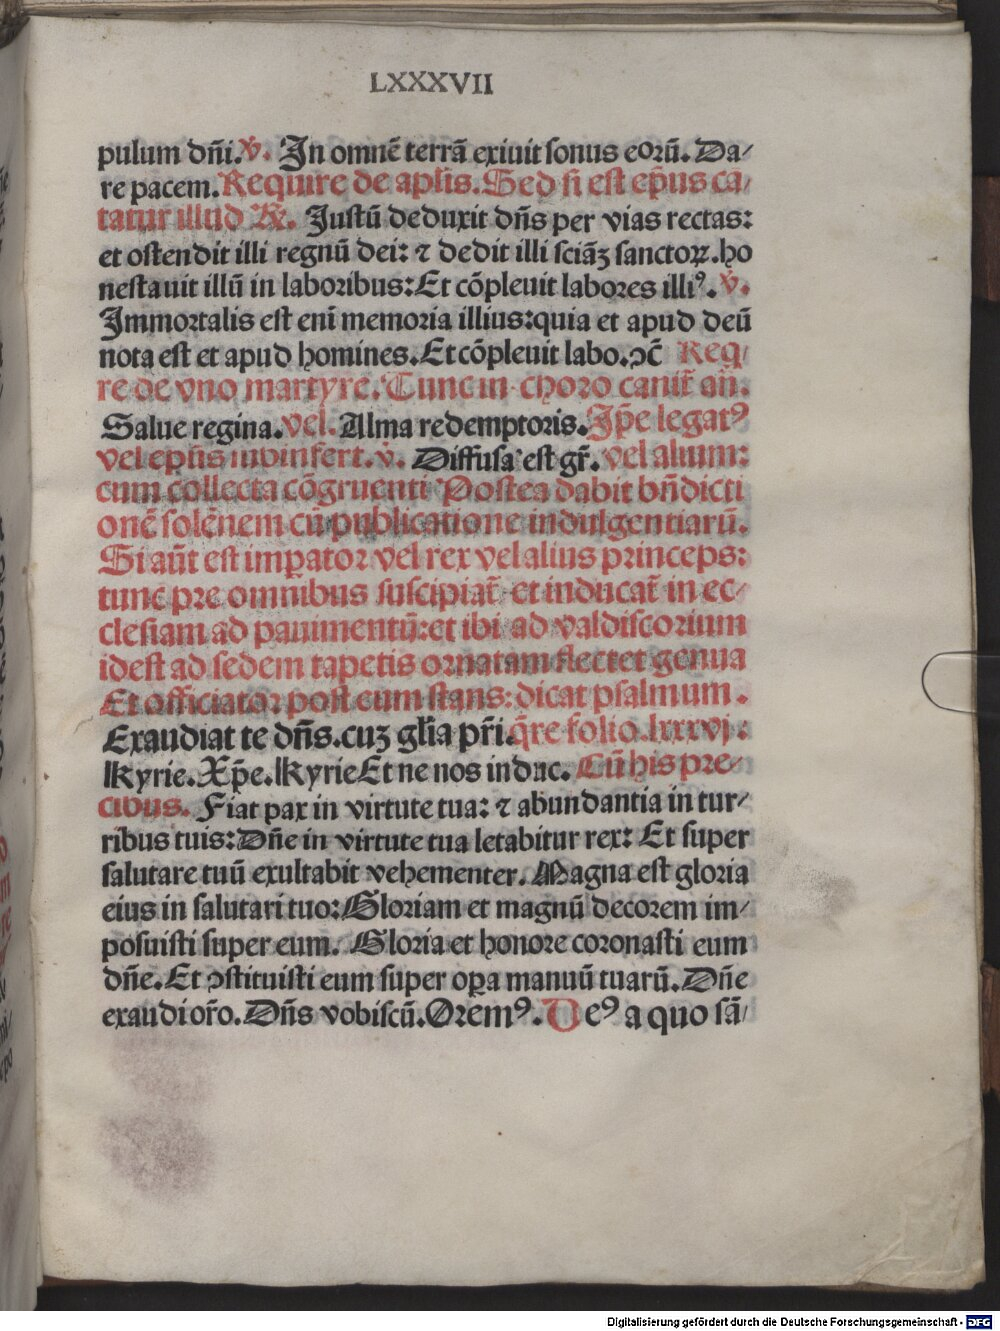 LXXXVII
pulum dñi. ℣. In omnē terrã exiuit sonus eoꝛũ. Da/
re pacem. Require de aplis. Sed si est ep̃us ca/
tatur illud ℟. Justũ deduxit dñs per vias rectas:
et ostendit illi regnũ dei: ⁊ dedit illi sciãʒ sanctoꝝ. ho
nestauit illũ in laboribus: Et cõpleuit labores illiꝰ. ℣.
Immoꝛtalis est enĩ memoꝛia illius: quia et apud deũ
nota est et apud homines. Et cõpleuit labo. ↄc̃ Req̃/
re de vno martyre. Tunc in choro canit̃ añ.
Salue regina. vel. Alma redemptoꝛis. Ip̃e legatꝰ
vel ep̃us ℣. Diffusa est gr̃. vel alium:
cum collecta cõgruenti Postea dabit bñdicti
onẽ solẽnem cũ publicatione indulgentiarũ.
Si aũt est imꝑatoꝛ vel rex vel alius princeps:
tunc pre omnibus suscipiat̃ et inducat̃ in ec/
clesiam ad pauimentũ: et ibi ad valdiscorium
idest ad sedem tapetis oꝛnatam flectet genua
Et officiatoꝛ post eum stans: dicat psalmum.
Exaudiat te dñs. cuʒ gl̃ia pr̃i. q̃re folio. lxxxvj:
Kyrie. Xp̃e. Kyrie Et ne nos induc. Cũ his pre/
cibus. Fiat pax in virtute tua: ⁊ abundantia in tur/
ribus tuis: Dñe in virtute tua letabitur rex: Et super
salutare tuũ exultabit vehementer. Magna est gloꝛia
eius in salutari tuo: Gloꝛiam et magnũ decoꝛem im/
posuisti super eum. Gloꝛia et honoꝛe coꝛonasti eum
dñe. Et ↄstituisti eum super oꝑa manuũ tuarũ. Dñe
exaudi oꝛ̃o. Dñs vobiscũ. Oꝛemꝰ. Deꝰ a quo sã/
Digitalisierung gefördert durch die Deutsche Forschungsgemeinschaft - DFG